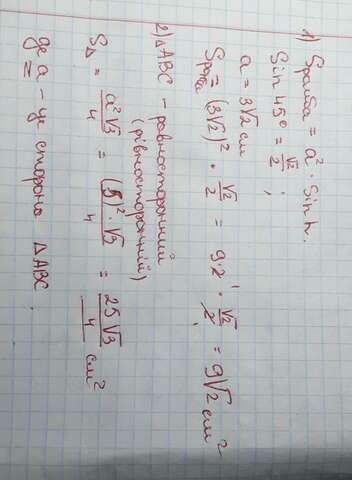 1) Sромба = a² · Sin h.
Sin 45° = √2/2 ;
a = 3√2 см
Sромба = (3√2)² · √2/2 = 9·2 · √2/2 = 9√2 см²
2) ΔABC – равносторонний
(рівносторонній)
S△ = a²√3/4 = (5)²·√3/4 = 25√3/4 см²
де a – це сторона ΔABC